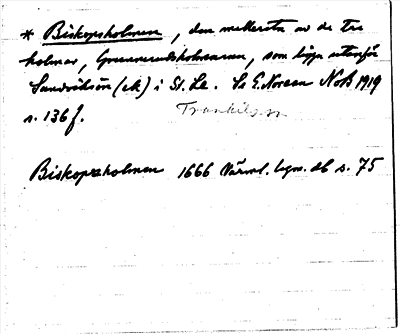 * Biskopsholmen, den mellersta av de tre
holmar, Gunnerudsholmarna, som ligga utanför
Sandvikson (ek) i St. Le. Se E. Noreen NoB 1919
s. 136 f.
Biskopsholmen 1666 Värml. legn. db s. 75